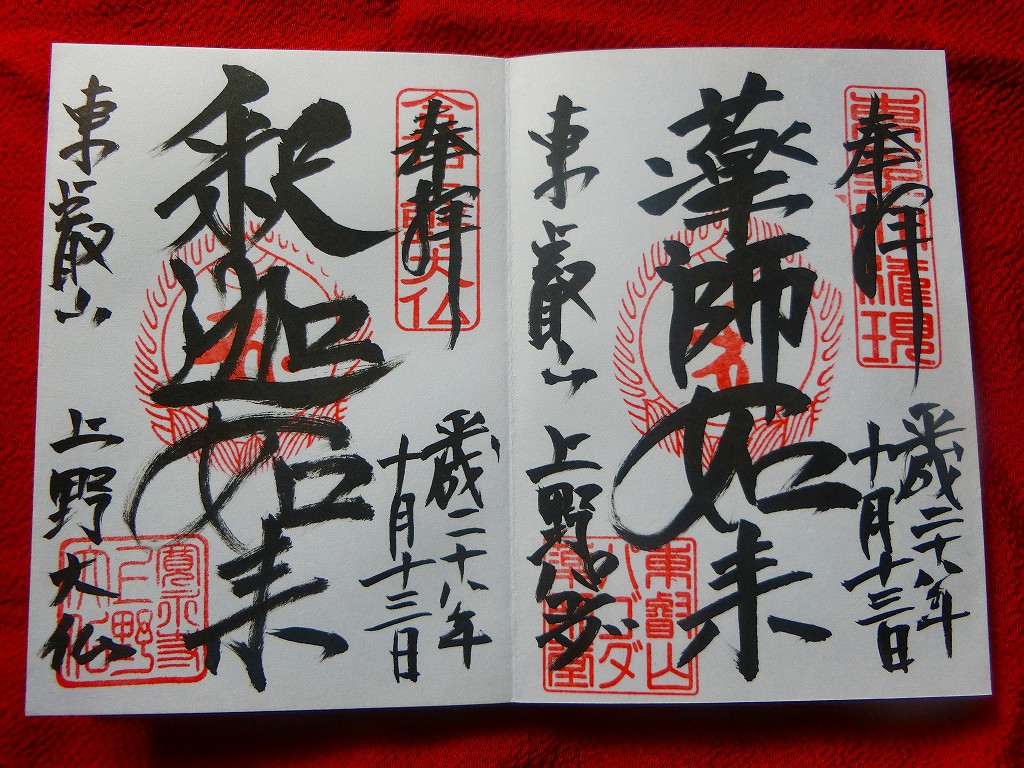 奉拝
平成二十八年
十月十三日
薬師如来
東叡山
上野
東叡山
パゴダ
薬師堂
奉拝
大仏
平成二十八年
十月十三日
釈迦如来
東叡山
上野大仏
寛永寺
上野
大仏